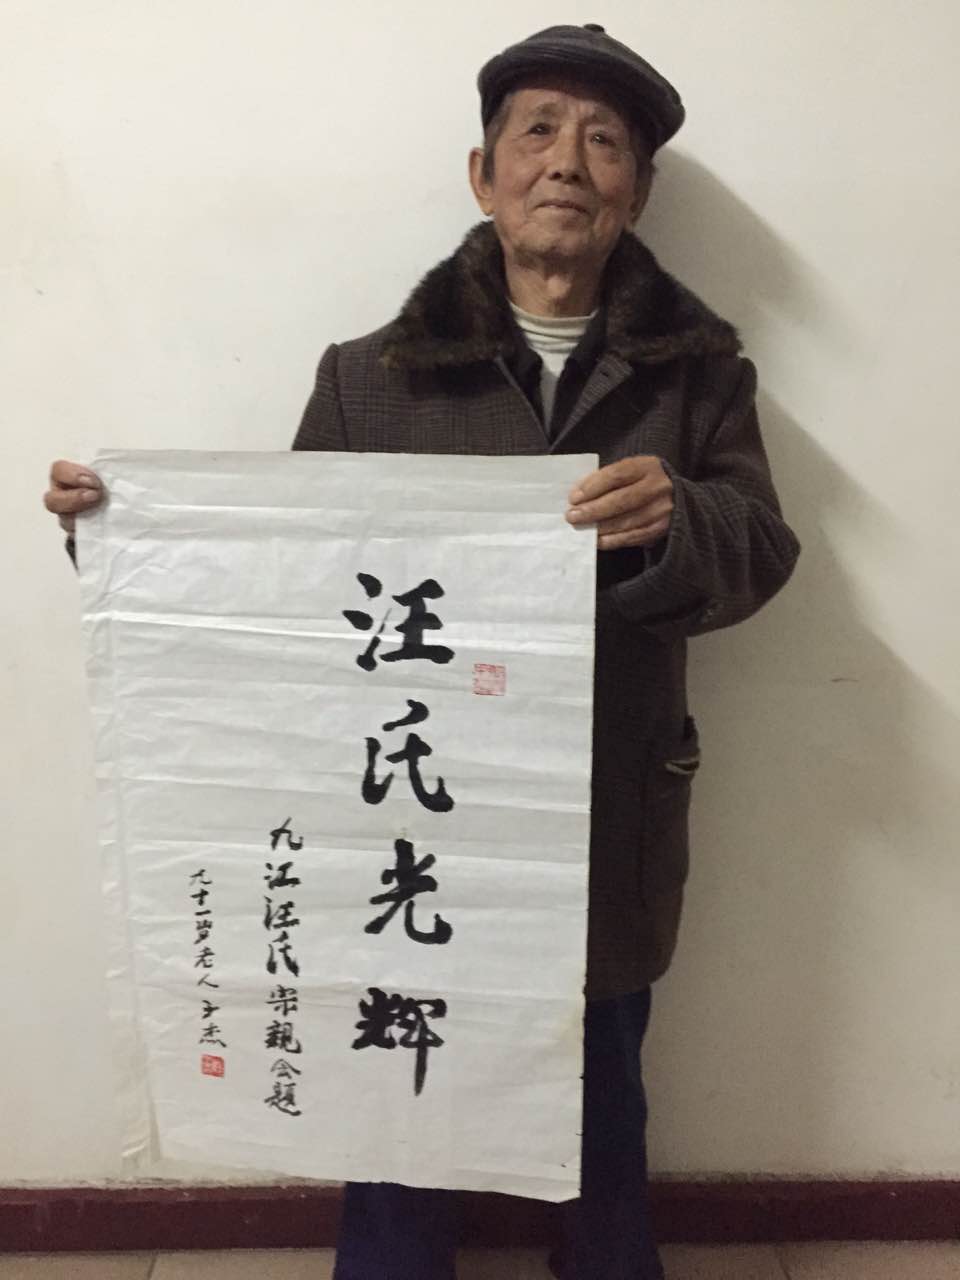 汪氏光辉
九江汪氏宗親会题
九十一岁老人子杰